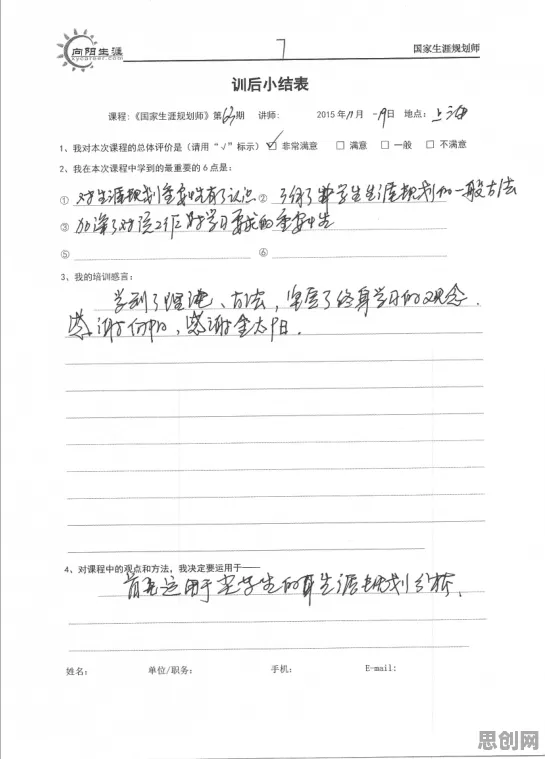 向阳生涯
xycareer.com
7
国家生涯规划师
训后小结表
课程:《国家生涯规划师》第63期 讲师: 2015年11月 -19日 地点: 上海
1、我对本次课程的总体评价是(请用“√”标示)☑ 非常满意 □ 满意 □ 一般 □ 不满意
2、我在本次课程中学到的最重要的6点是:
① 对生涯规划重要性有了认识 ② 了解了 学生生涯规划的一般方法
③ 加深了对 学习 的重要性
⑤ ⑥
3、我的培训感言:
学到了理论、方法,坚定了终身学习的观念.
感谢向阳,感谢金太阳.
4、对课程中的观点和方法,我决定要运用于——
首先运用于 学生的 生涯规划分析.
姓名: 单位/职务: 手机: E-mail:
思创网